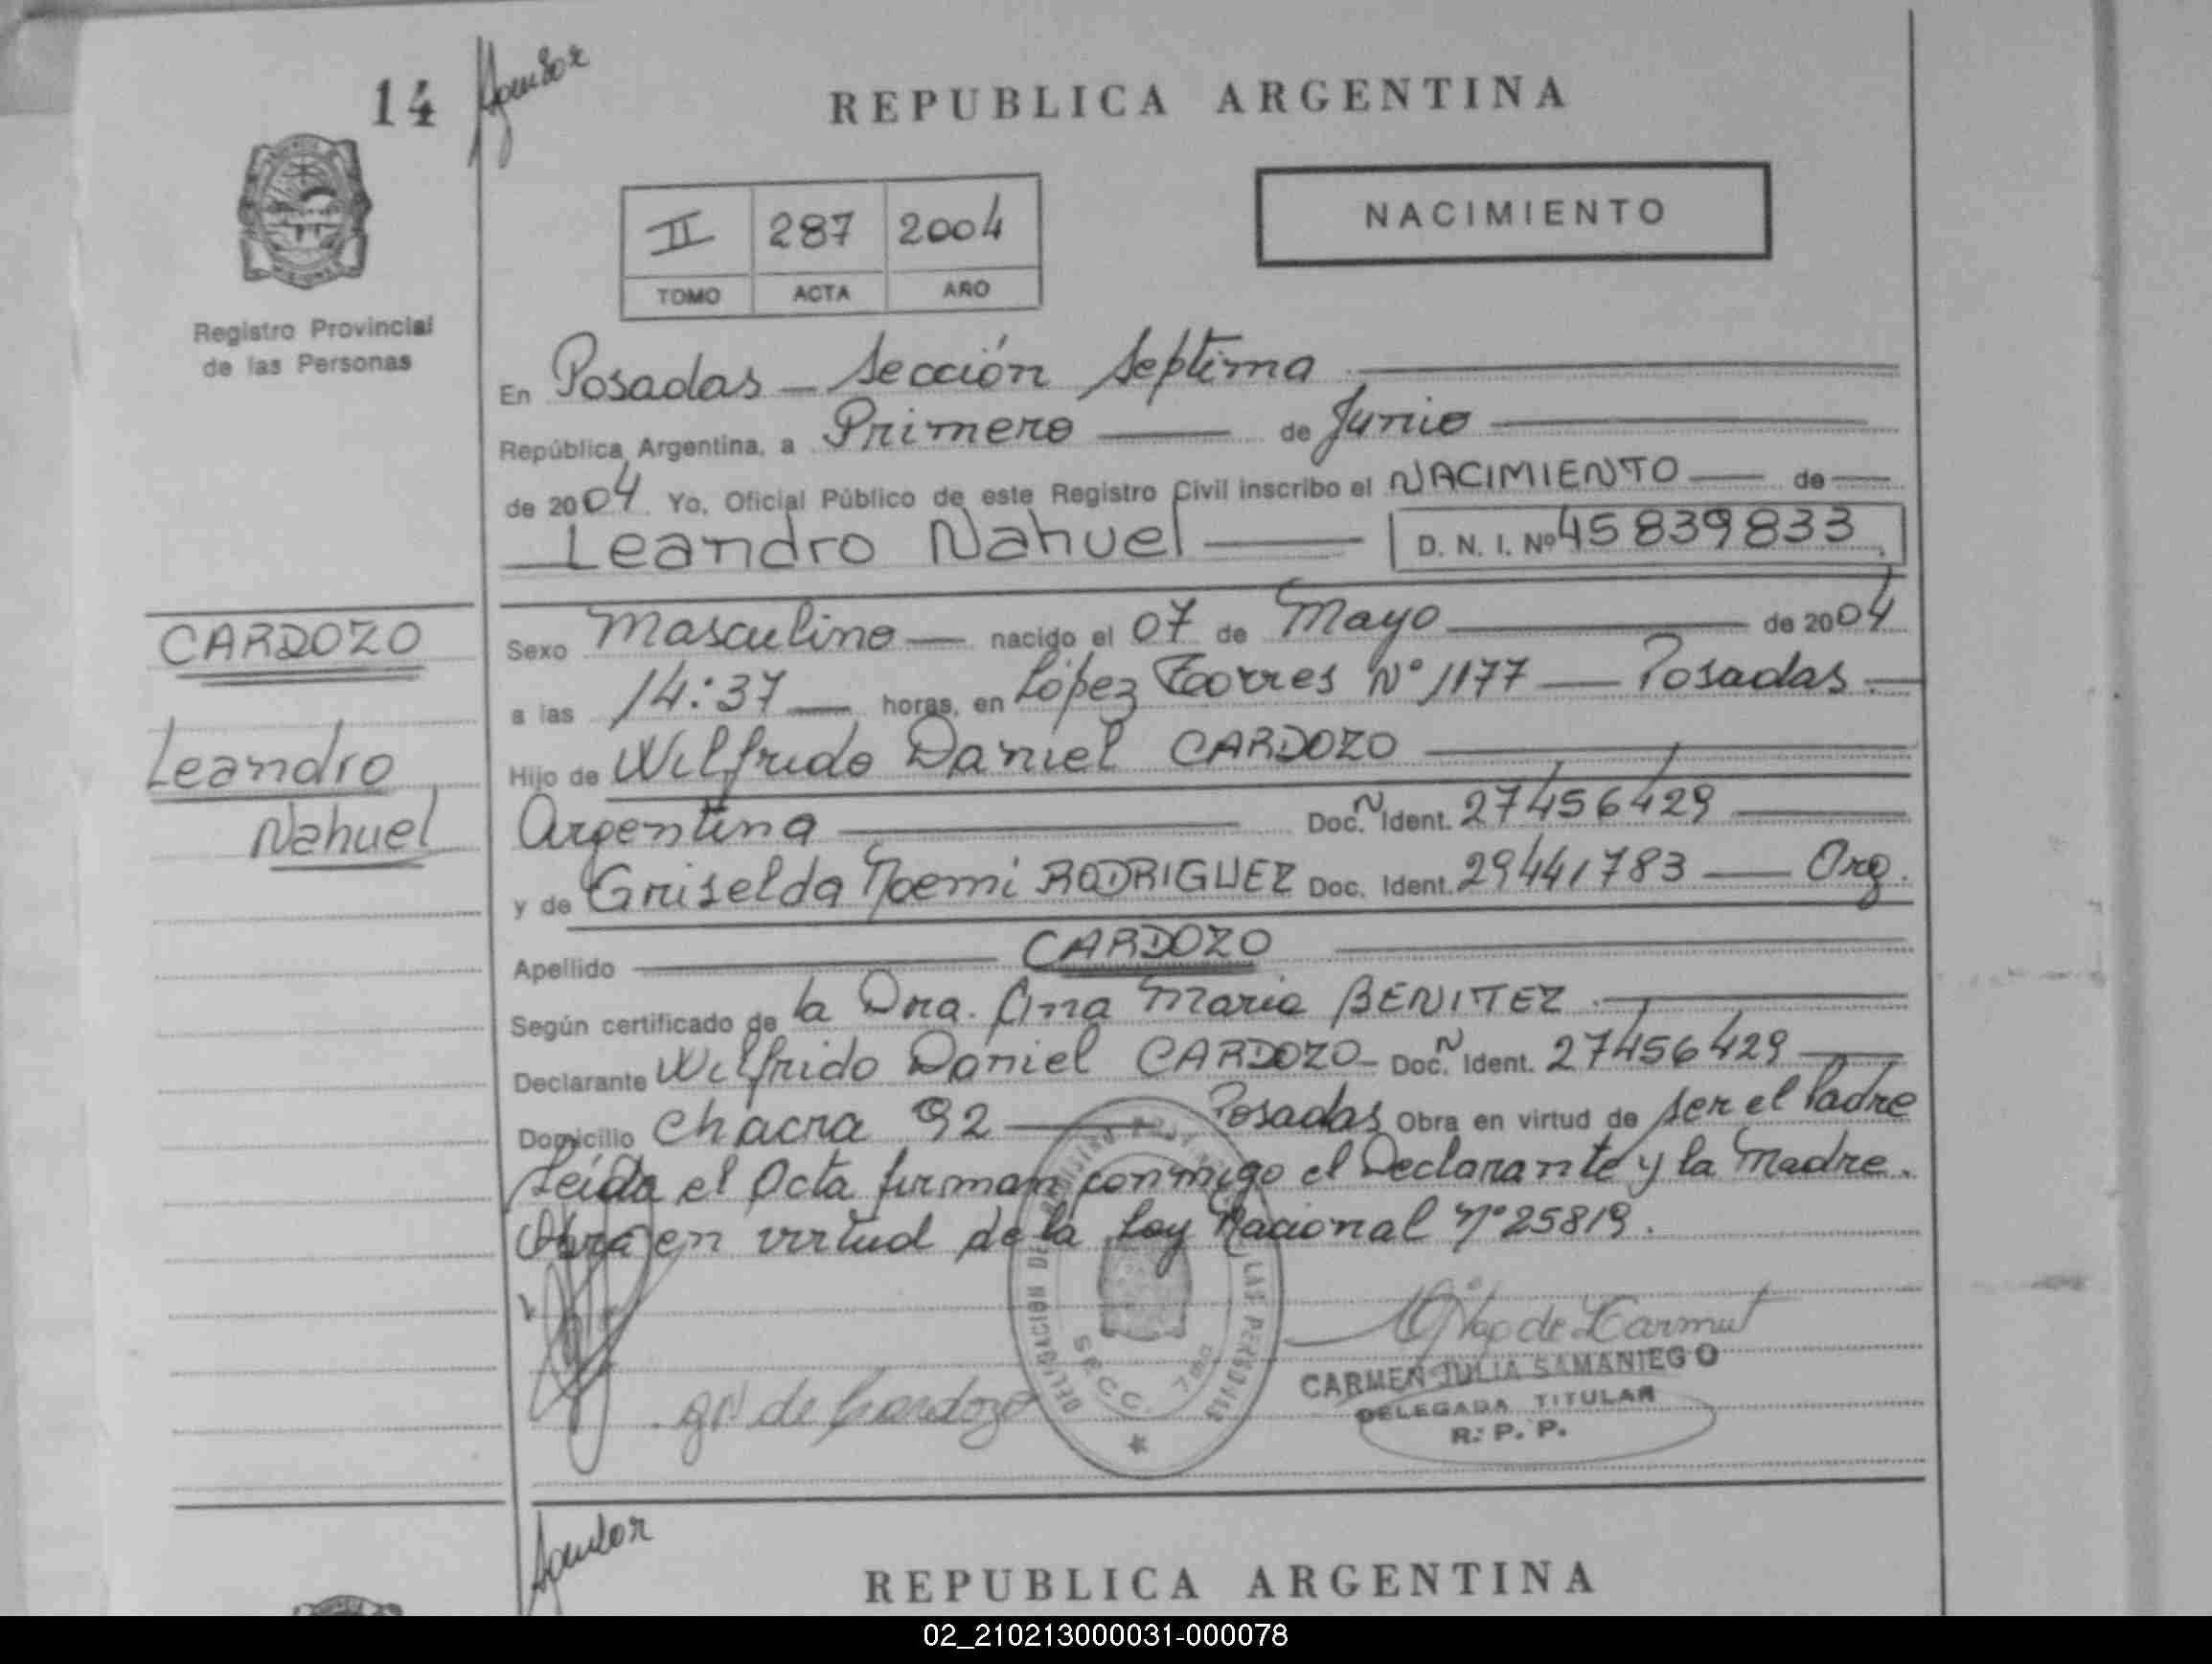 14
REPUBLICA ARGENTINA
II 287 2004
TOMO ACTA AÑO
NACIMIENTO
Registro Provincial
de las Personas
En Posadas - Sección Septima
República Argentina, a Primero de Junio
de 2004 Yo, Oficial Público de este Registro Civil inscribo el NACIMIENTO de
Leandro Nahuel D. N. I. Nº 45839833
CARDOZO
Leandro
Nahuel
Sexo Masculino nacido el 07 de Mayo de 2004
a las 14:37 horas, en López Torres Nº 1177 - Posadas
Hijo de Wilfrido Daniel CARDOZO
Argentina Doc. N Ident. 27456429
y de Griselda Noemi RODRIGUEZ Doc. Ident. 29441783 - Arg.
Apellido CARDOZO
Según certificado de la Dra. Ana Maria BENITEZ
Declarante Wilfrido Daniel CARDOZO - Doc. N Ident. 27456429
Domicilio Chacra 92 Posadas Obra en virtud de ser el Padre
Leída el Acta firman conmigo el Declarante y la Madre.
Obra en virtud de la Ley Nacional Nº 25819.
DELEGACIÓN DE REGISTRO LAS PERSONAS
SECC. 7ma
de Cardozo
CARMEN JULIA SAMANIEGO
DELEGADA TITULAR
R. P. P.
REPUBLICA ARGENTINA
02_210213000031-000078